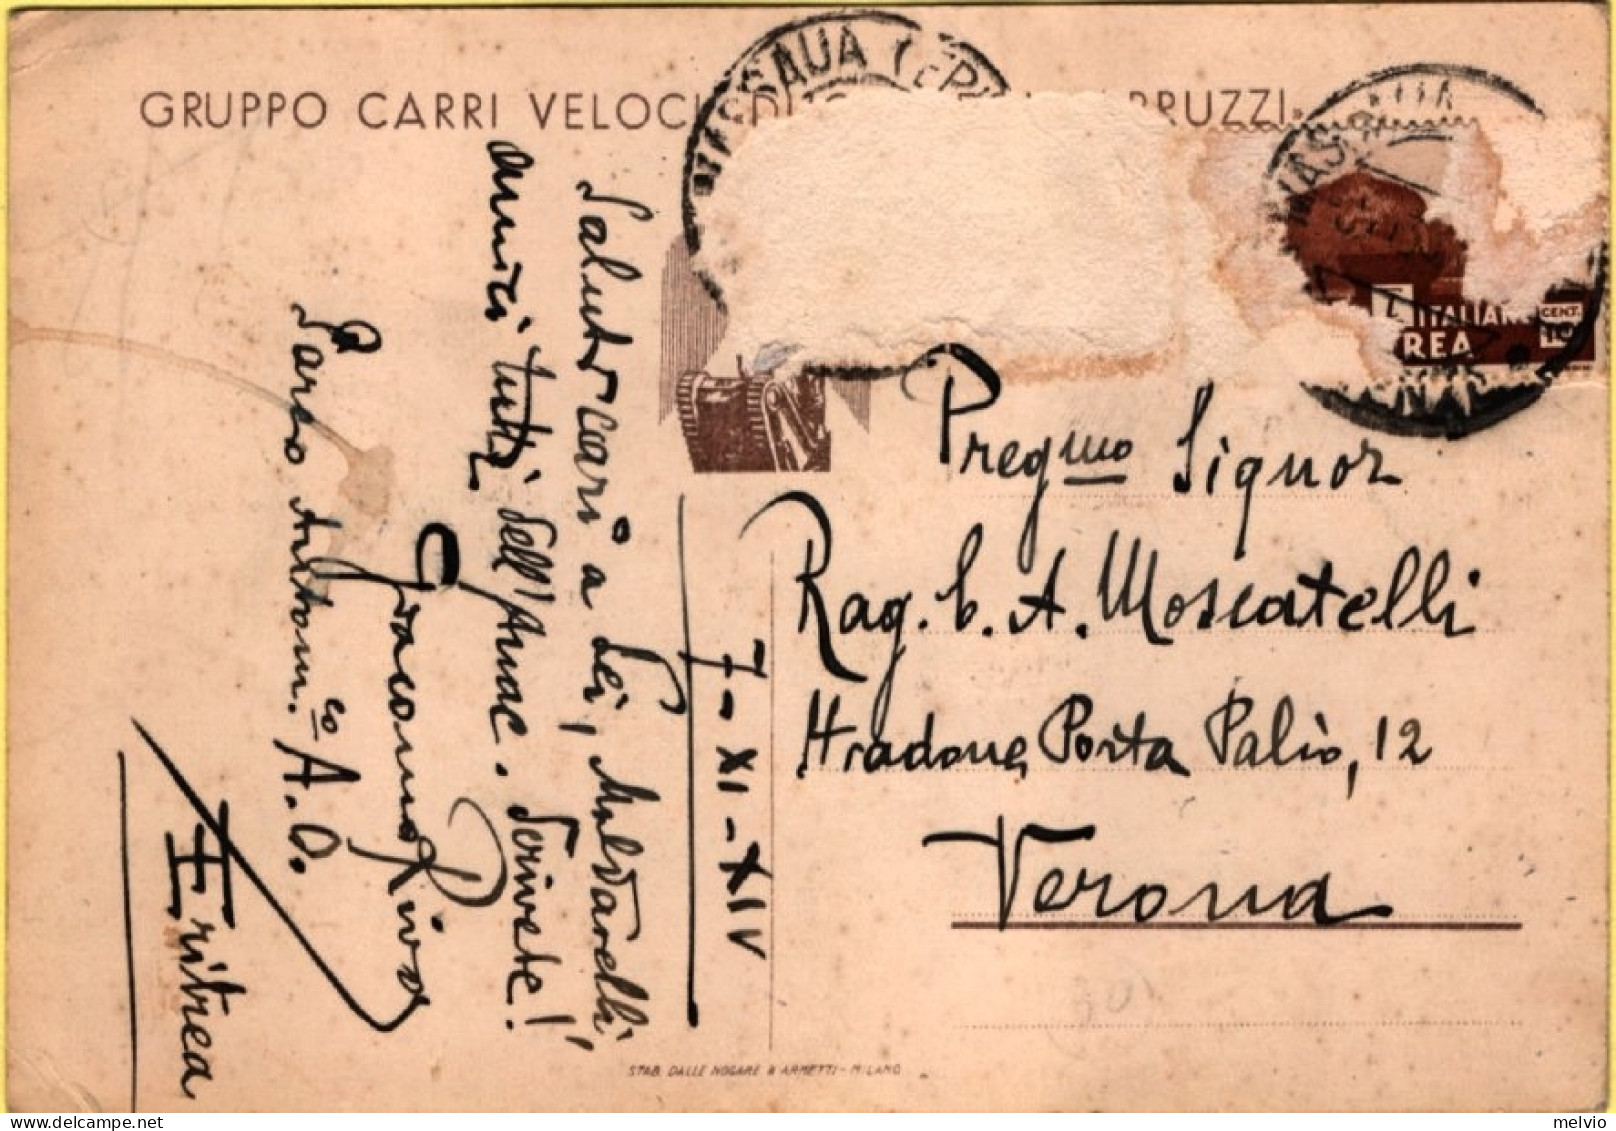 GRUPPO CARRI VELOCI DU RRUZZI.
MASSAUA (ER
MASSAUA
ITALIAN
REA
CENT.
10
Saluti cari a Lei, Malvarelli
amici tutti dell'Anac. Scrivete!
Giacomo Riva
Parco Autom. co A.O.
Eritrea
7-XI-XIV
Preg mo Signor
Rag. C. A. Moscatelli
Stradone Porta Palio, 12
Verona
STAB. DALLE NOGARE & ARMETTI - MILANO
melvio